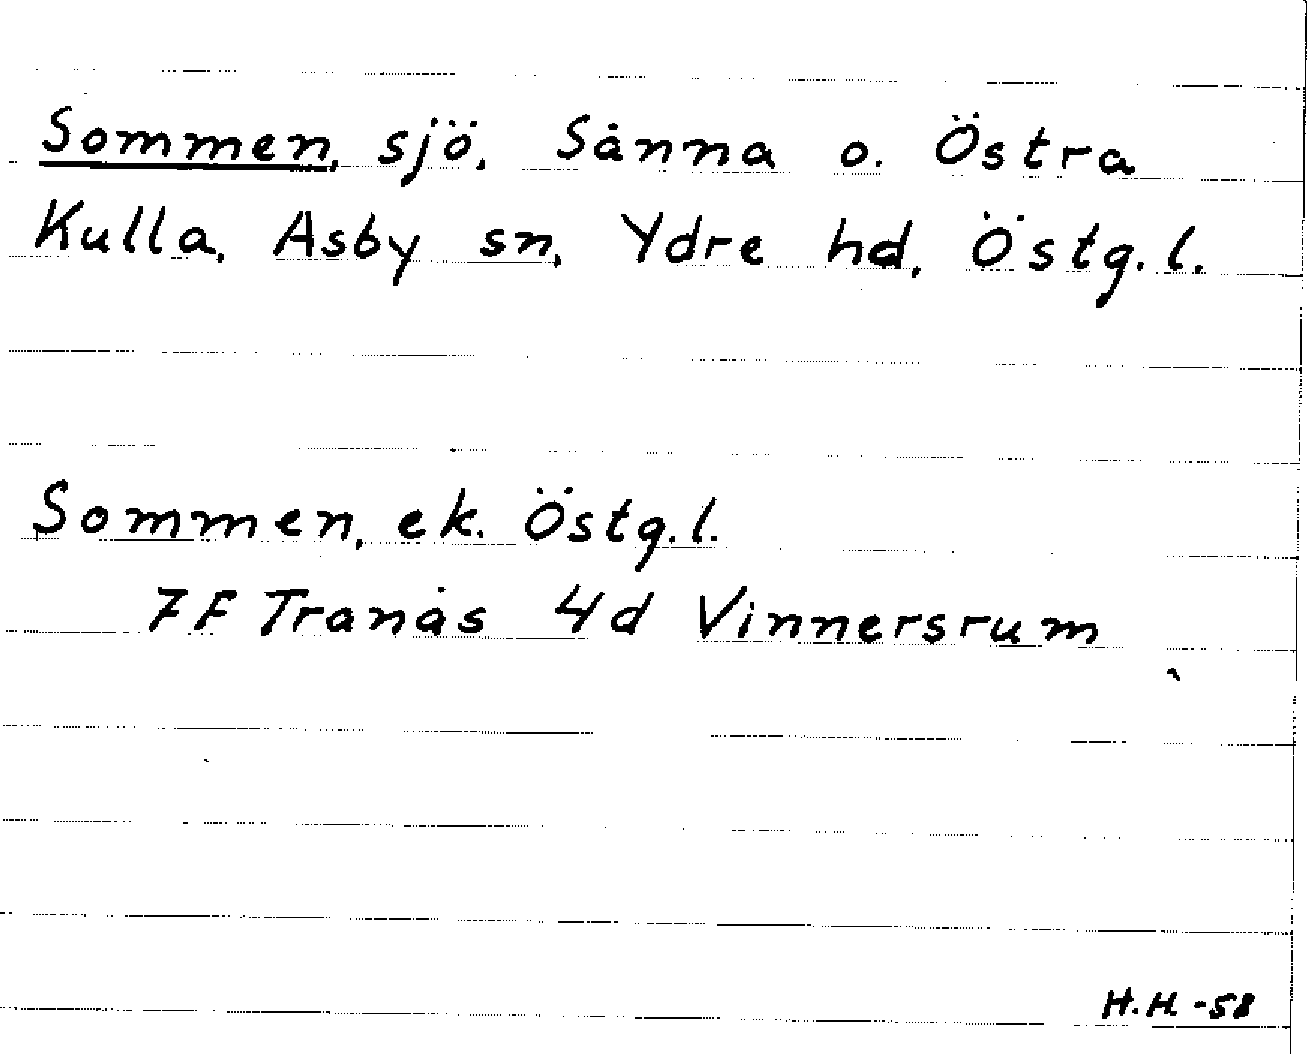 Sommen, sjö, Sånna o. Östra
Kulla, Asby sn, Ydre hd, Östg.l.
Sommen, ek. Östg.l.
7F Tranås 4d Vinnersrum
H.H. -58